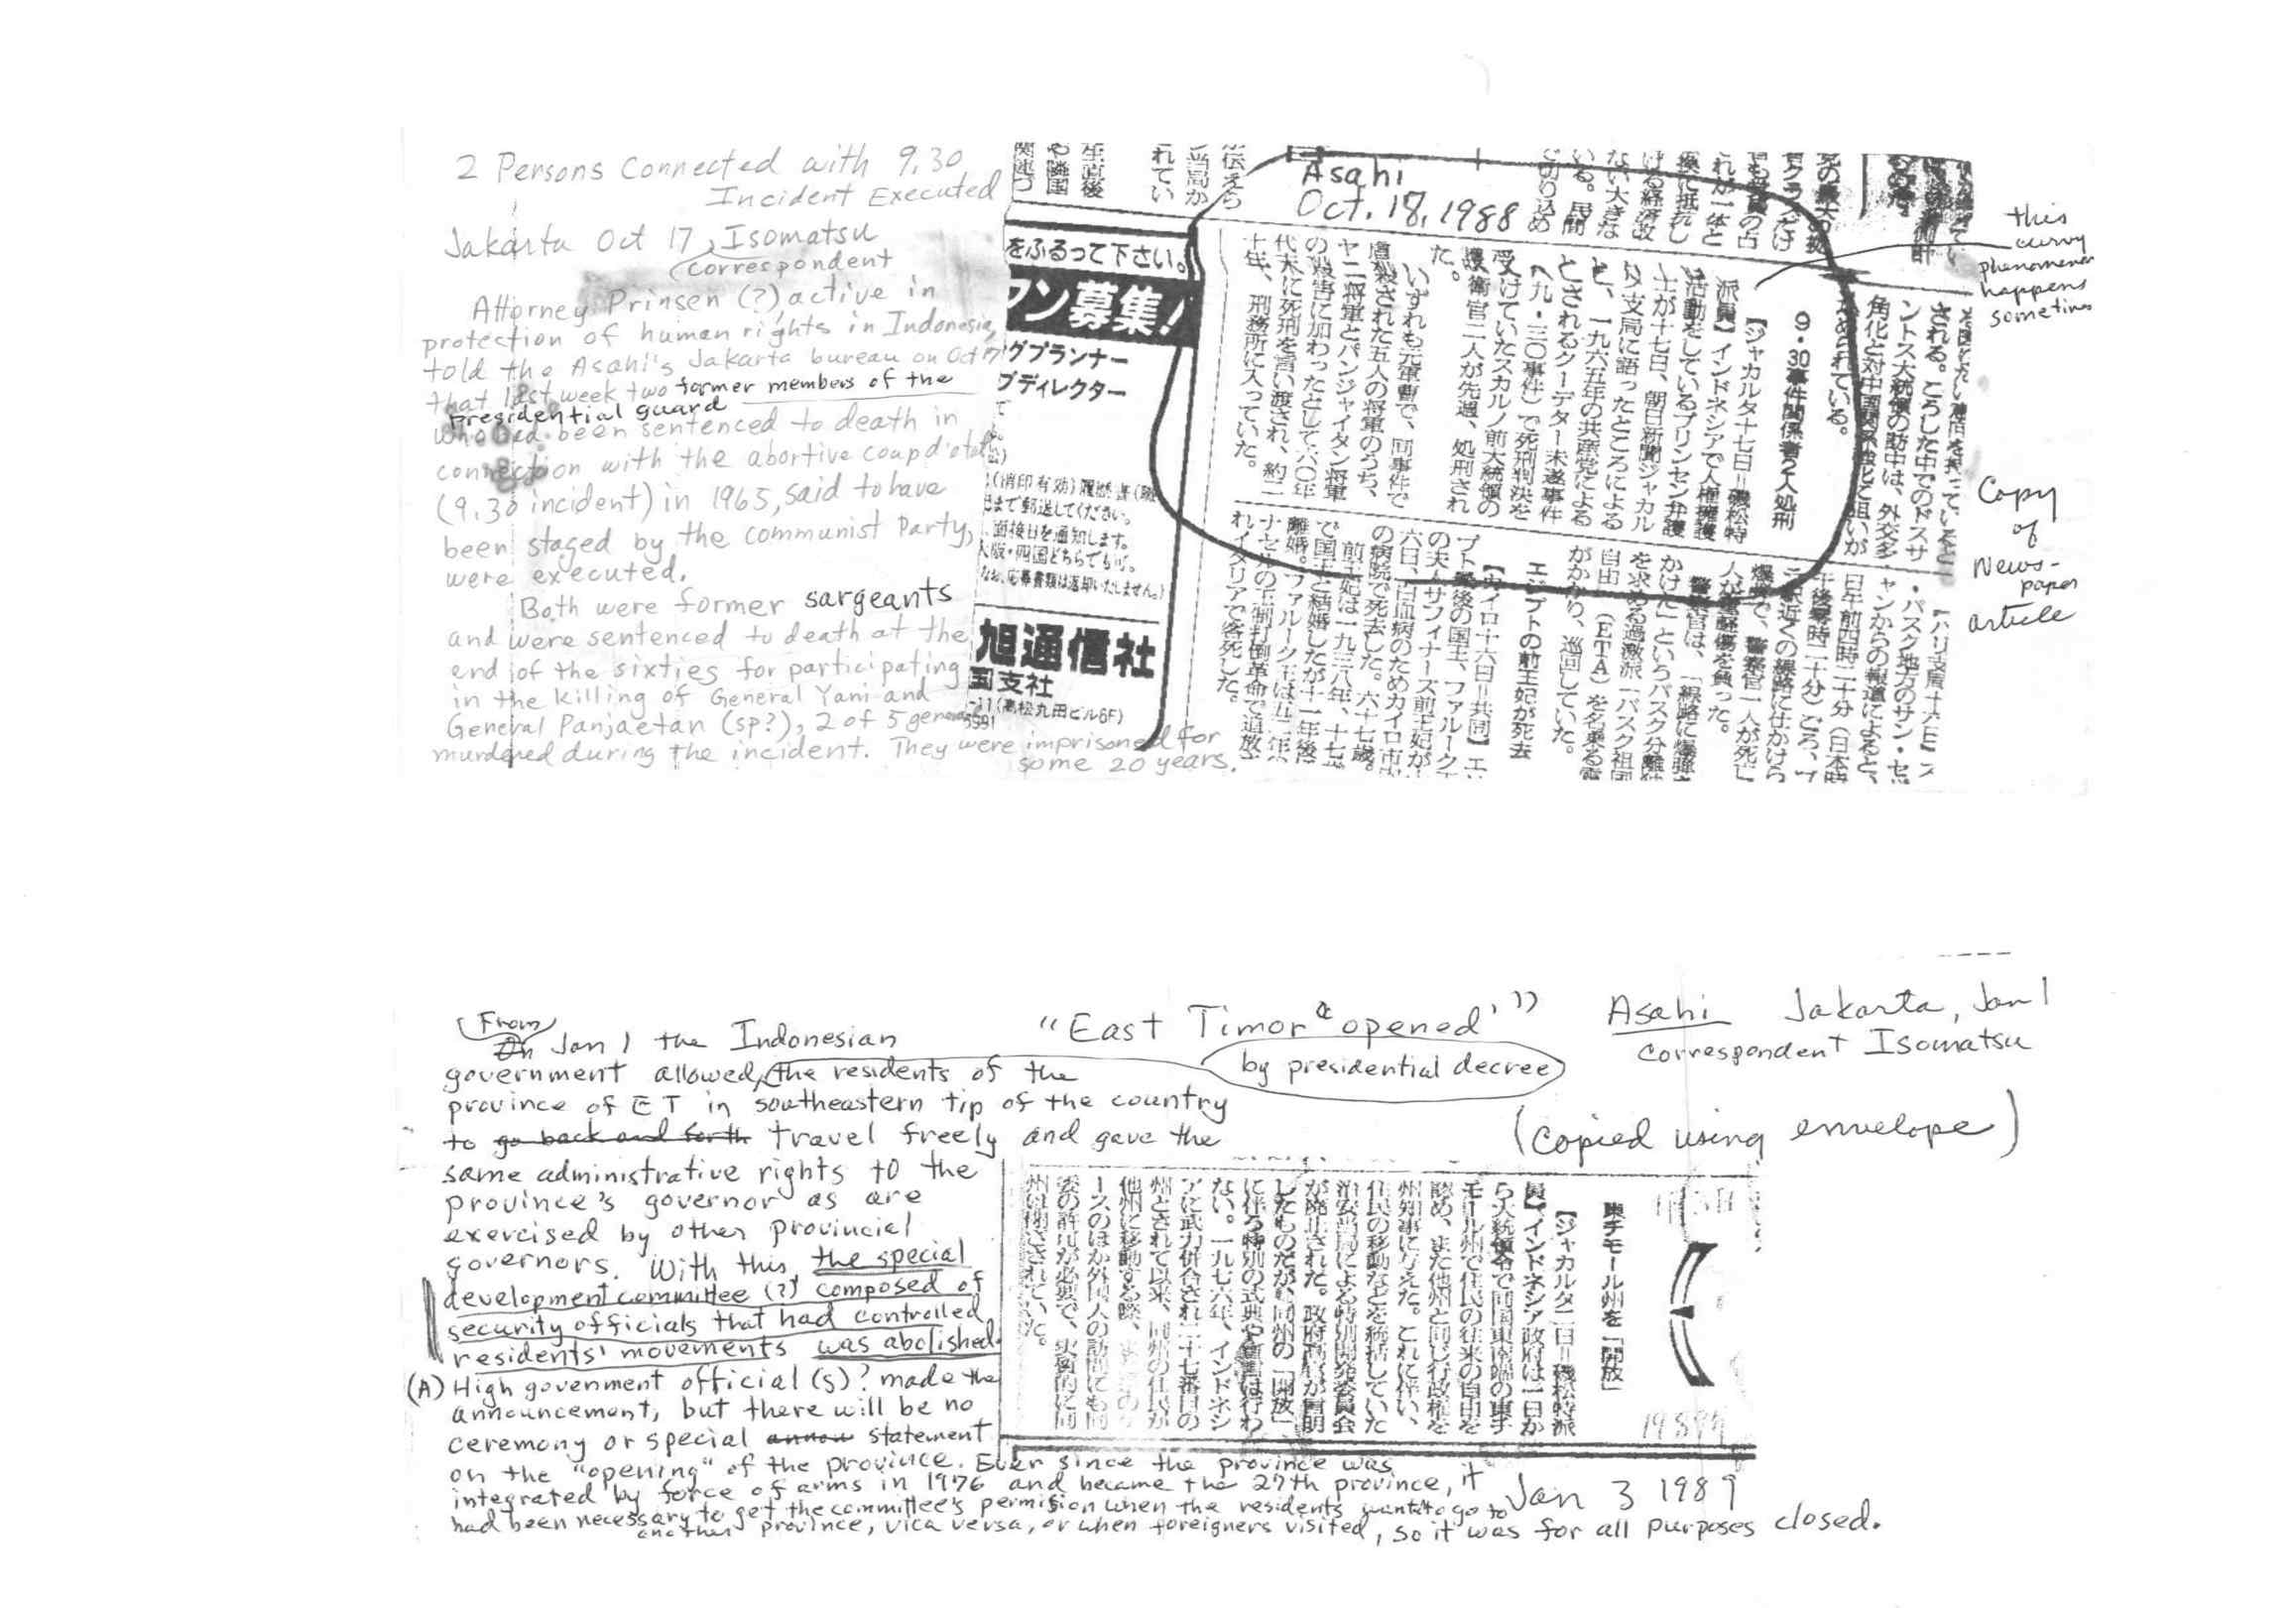 2 Persons Connected with 9.30
Incident Executed
Jakarta Oct 17, Isomatsu
correspondent
Attorney Prinsen (?) active in
protection of human rights in Indonesia,
told the Asahi's Jakarta bureau on Oct 17
that last week two former members of the
presidential guard
who had been sentenced to death in
connection with the abortive coup d'etat
(9.30 incident) in 1965, said to have
been staged by the communist Party,
were executed.
Both were former sargeants
and were sentenced to death at the
end of the sixties for participating
in the killing of General Yani and
General Panjaetan (sp?), 2 of 5 generals
murdered during the incident. They were imprisoned for
some 20 years.
Asahi
Oct. 18, 1988
9・30事件関係者2人処刑
【ジャカルタ十七日=磯松特
派員】インドネシアで人権擁護
活動をしているプリンセン弁護
士が十七日、朝日新聞ジャカル
タ支局に語ったところによる
と、一九六五年の共産党による
とされるクーデター未遂事件
(九・三〇事件)で死刑判決を
受けていたスカルノ前大統領の
護衛官二人が先週、処刑され
た。
いずれも元軍曹で、同事件で
虐殺された五人の将軍のうち、
ヤニ将軍とパンジャイタン将軍
の殺害に加わったとして六〇年
代末に死刑を言い渡され、約二
十年、刑務所に入っていた。
this
curvy
phenomenon
happens
sometimes
Copy
of
News-
paper
article
をふるって下さい。
ワン募集!
グプランナー
プディレクター
(消印有効)履歴書(
まで郵送してください。
面接日を通知します。
大阪・四国どちらでも可。
なお、応募書類は返却いたしません。)
旭通信社
国支社
-11(高松丸田ビル6F)
5591
される。こうした中でのドスサ
ントス大統領の訪中は、外交多
角化と対中国関係強化を狙いが
こめられている。
エジプトの前王妃が死去
【カイロ十六日=共同】エジ
プト最後の国王、ファルーク王
の夫人サフィナーズ前王妃が十
六日、白血病のためカイロ市内
の病院で死去した。六十七歳。
前王妃は一九三八年、十七歳
で国王と結婚したが十一年後に
離婚。ファルーク王は五二年の
ナセルの王制打倒革命で追放さ
れイタリアで客死した。
From
On Jan 1 the Indonesian
government allowed, the residents of the
province of ET in southeastern tip of the country
to go back and forth travel freely and gave the
same administrative rights to the
province's governor as are
exercised by other provincial
governors. With this, the special
development committee (?) composed of
security officials that had controlled
residents' movements was abolished.
(A) High govenment official (s)? made the
announcement, but there will be no
ceremony or special annou statement
on the "opening" of the province. Ever since the province was
integrated by force of arms in 1976 and became the 27th province, it
had been necessary to get the committee's permission when the residents wanted to go to
another province, vica versa, or when foreigners visited, so it was for all purposes closed.
"East Timor "opened'"
by presidential decree
Asahi Jakarta, Jan 1
correspondent Isomatsu
(copied using envelope)
東チモール州を「開放」
【ジャカルタ一日=磯松特派
員】インドネシア政府は一日か
ら大統領令で同国東南端の東チ
モール州で住民の往来の自由を
認め、また他州と同じ行政権を
州知事に与えた。これに伴い、
住民の移動などを統括していた
治安当局による特別開発委員会
が廃止された。政府高官が言明
したものだが、同州の「開放」
に伴う特別の式典や声明は行わ
ない。一九七六年、インドネシ
アに武力併合され二十七番目の
州とされて以来、同州の住民が
他州に移動する際、
ースのほか外国人の訪問にも同
委の許可が必要で、実質的に同
州は閉ざされていた。
Jan 3 1989